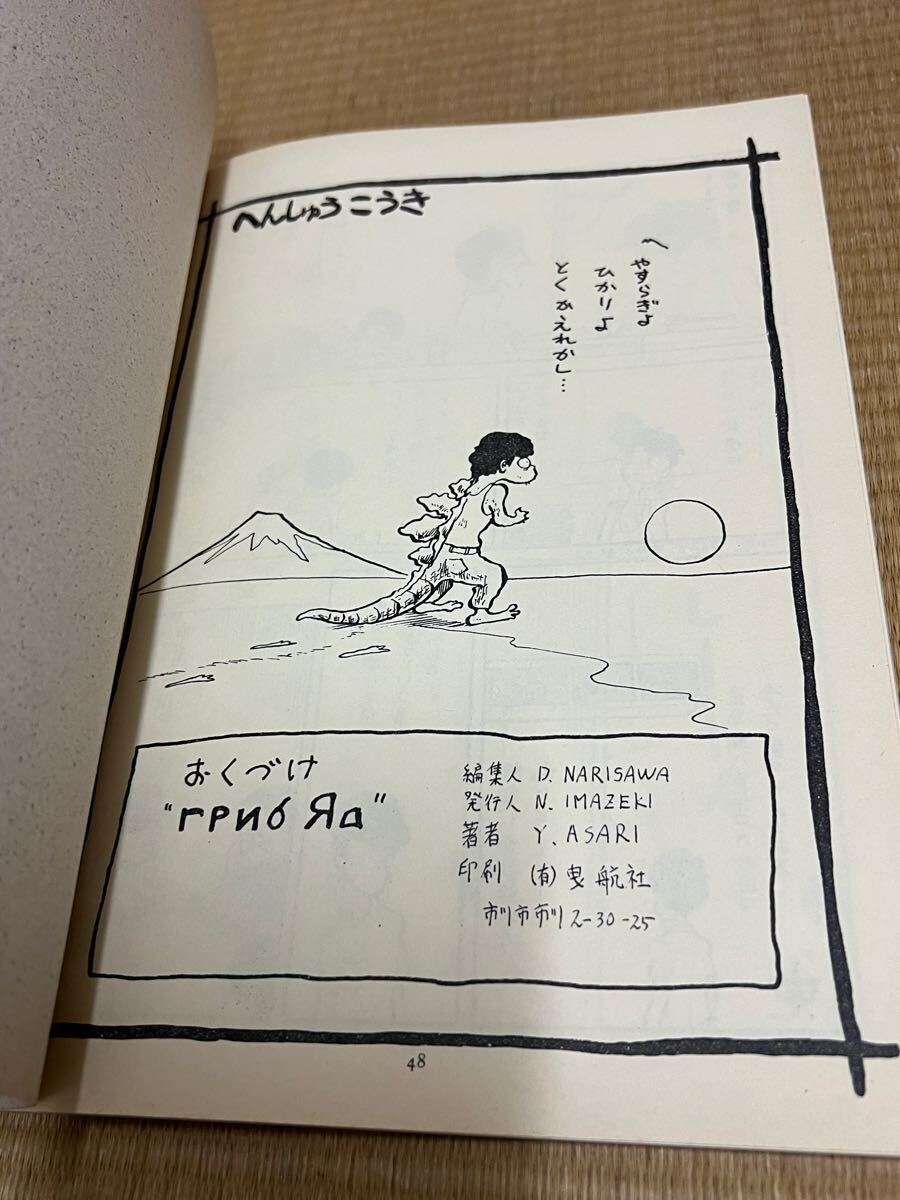 へんしゅうこうき
〽 やすらぎよ
ひかりよ
とくかえれかし…
おくづけ
"гриб Яа"
編集人 D. NARISAWA
発行人 N. IMAZEKI
著者 Y. ASARI
印刷 (有)曳航社
市川市市川2-30-25
48